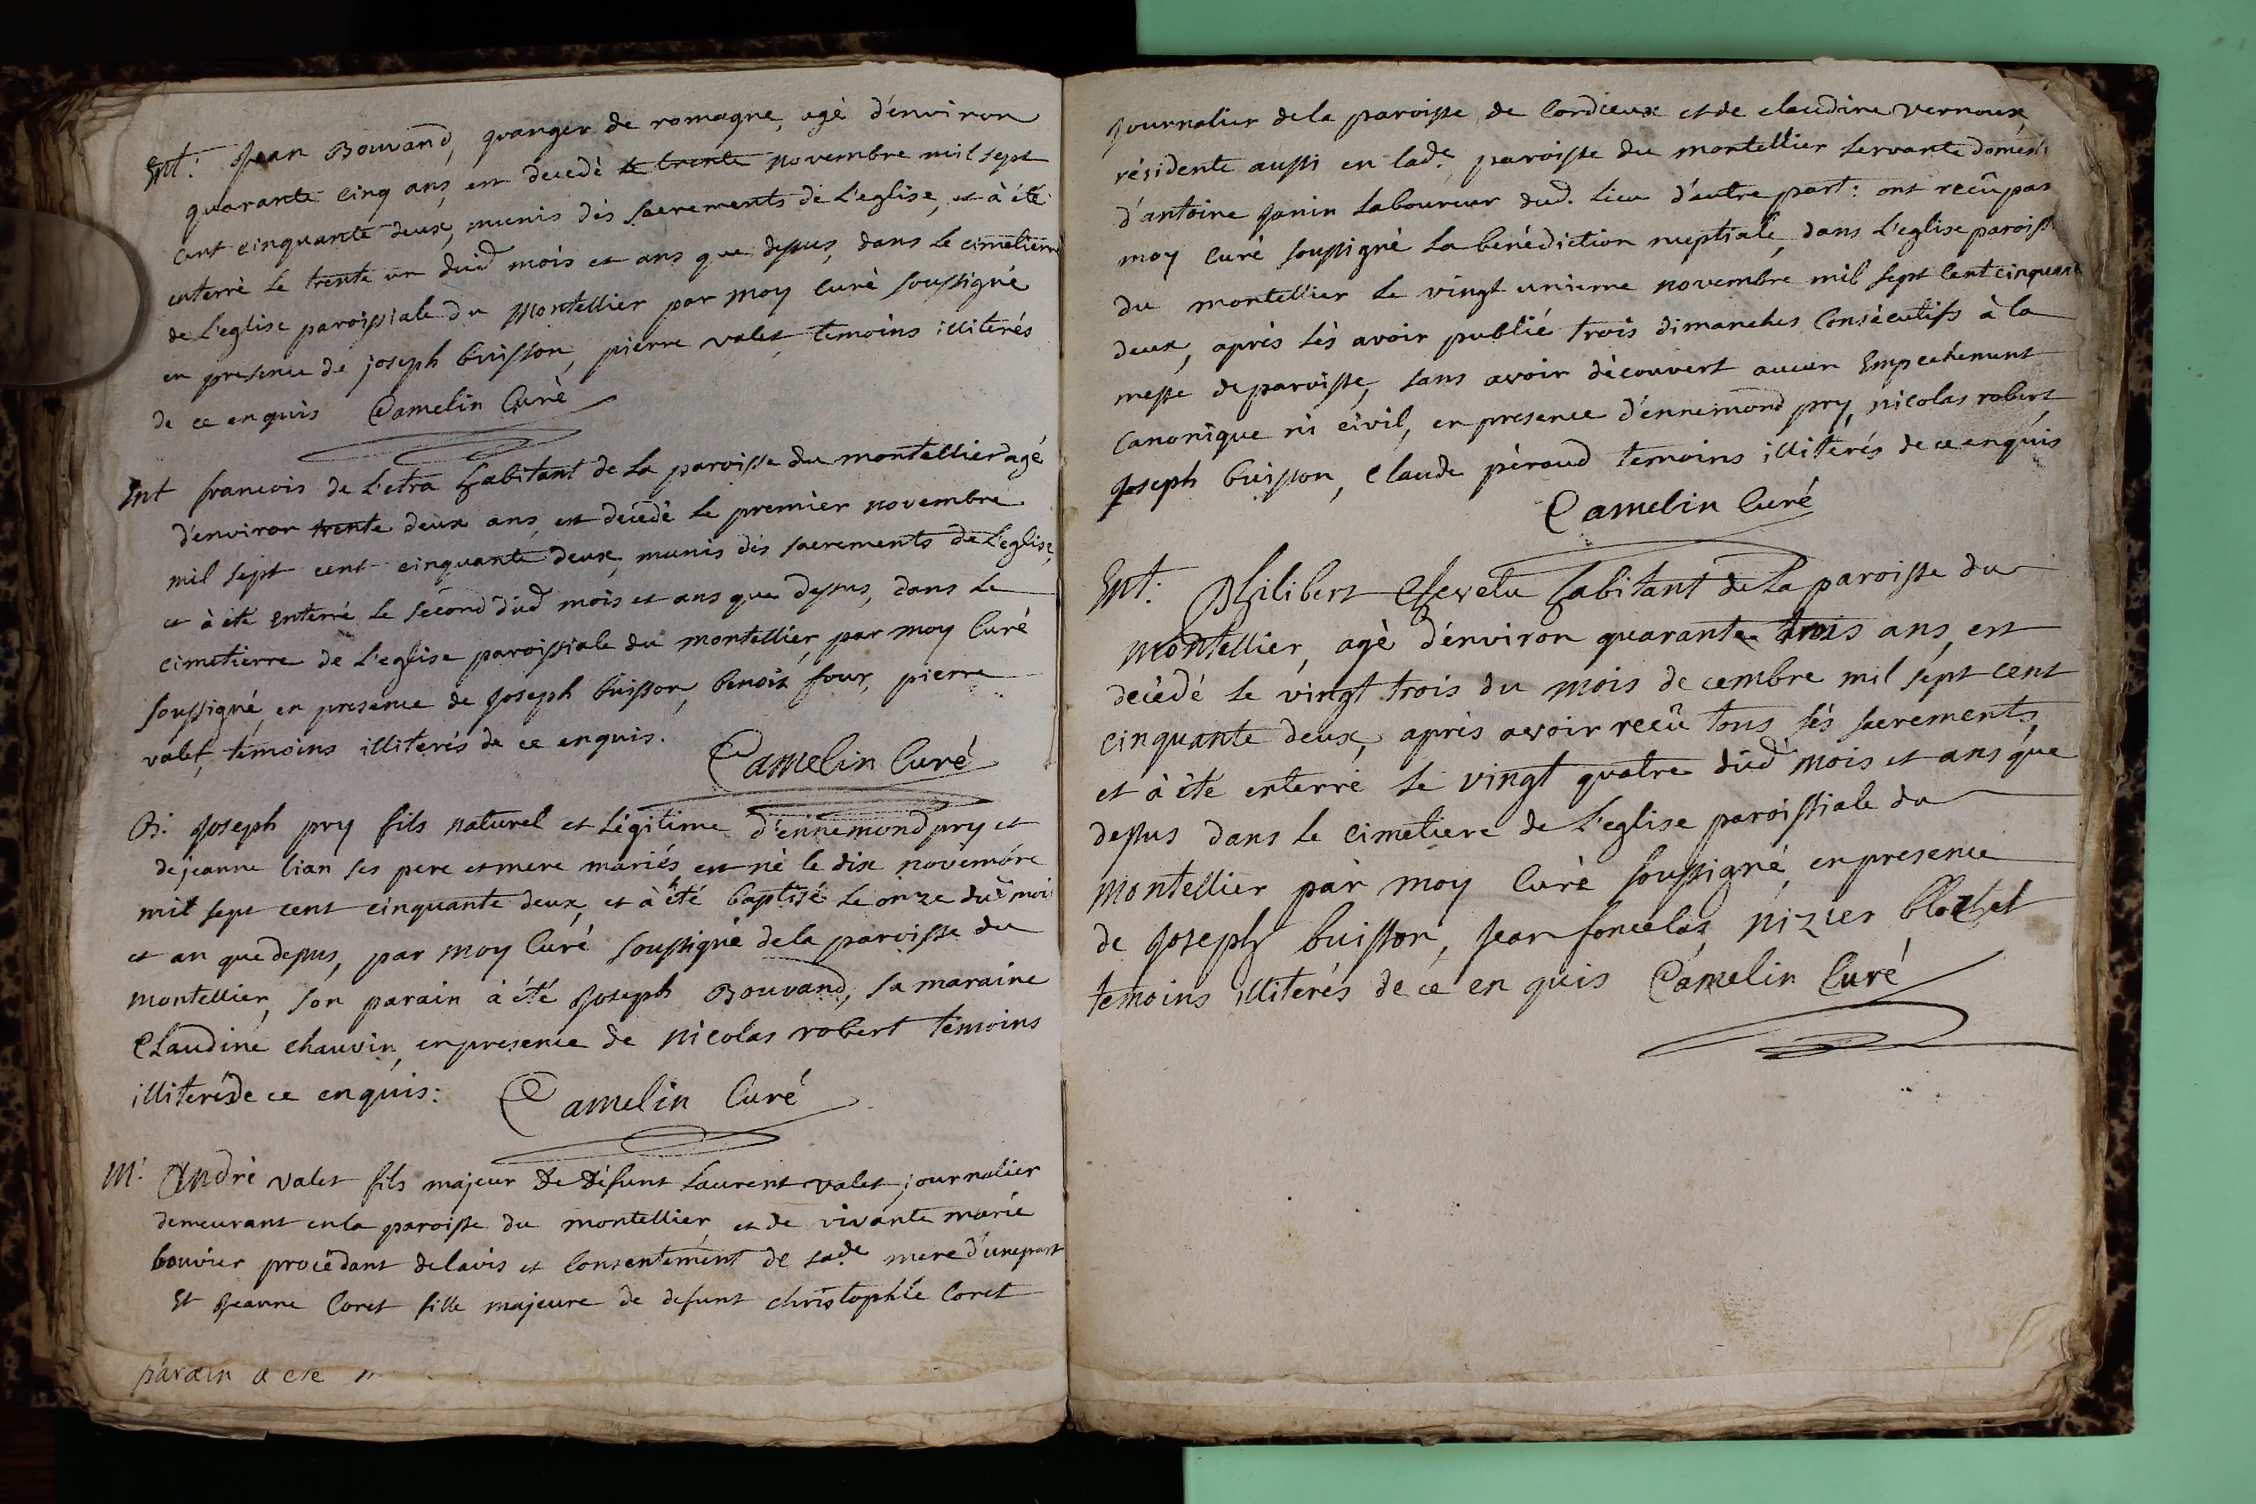 Ent: Jean Bouvand, granger de romagne, agè d'environ
quarante cinq ans, est decedè le trente novembre mil sept
cent cinquante deux, munis dès sacrements de L'eglise, et à été
enterrè le trente un dùd mois et ans que dessus, dans le cimetierre
de L'eglise paroissiale du Montellier par moy curè soussigné
en presence de joseph buisson, pierre valet, temoins illiterés
de ce enquis Camelin Curè
Ent francois de L'etra habitant de La paroisse du montellier agé
d'environ trente deux ans, est decedè le premier novembre
mil sept cent cinquante deux, munis dès sacrements de L'eglise,
et à été enterré le second dùd mois et ans que dessus, dans le
cimetierre de L'eglise paroissiale du montellier, par moy Curé
soussigné, en presence de Joseph buisson, benoit four, pierre
valet, temoins illiterés de ce enquis.
Camelin Curè
B: Joseph pry fils naturel et légitime d'ennemond pry et
de jeanne lian ses pere et mere mariés est nè le dix novembre
mil sept cent cinquante deux, et à été baptisé le onze dud mois
et an que dessus, par moy Curé soussigné de la paroisse du
montellier, son parain à été Joseph Bouvand, sa maraine
Claudine chauvin, en presence de nicolas robert temoins
illiterés de ce enquis: Camelin Curé
M: André valet fils majeur de défunt Laurent valet, journalier
demeurant en la paroisse du montellier, et de vivante marie
bouvier procèdant de lavis et Consentement de sade mere d'une part
Et Jeanne Coret fille majeure de defunt christophle Coret
parain a ete
Journalier de la paroisse de Cordieux et de claudine vernoux,
résidente aussi en lade paroisse du montellier servante domesti
d'antoine Janin Laboureur dud. Lieu d'autre part: ont reçû par
moy Curé soussigné La bénédiction nuptiale, dans L'eglise paroiss
du montellier le vingt unieme novembre mil sept Cent cinquante
deux, après lès avoir publié trois dimanches Consécutifs à la
messe de paroisse, sans avoir dècouvert aucun Empechement
Canonique ni civil, en presence d'ennemond pry, nicolas robert,
Joseph buisson, Claude pèraud temoins illiterés de ce enquis
Camelin Curé
Ent: Philibert Chevelu habitant de La paroisse du
montellier, agè d'environ quarante trois ans, est
decèdé le vingt trois du mois decembre mil sept cent
cinquante deux, après avoir recû tous sès sacrements,
et à éte enterré le vingt quatre dùd mois et ans que
dessus dans le cimetiere de L'eglise paroissiale du
montellier par moy Curè soussigné, en presence
de Joseph buisson, Jean foncelas, nizier
temoins illiterés de ce en quis Camelin Curé